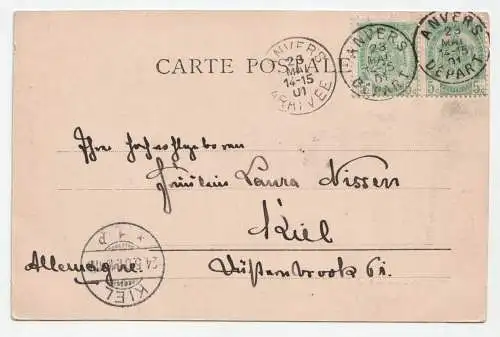 CARTE POSTALE
ANVERS
23
MAI
14-15
01
ARRIVÉE
ANVERS
23
MAI
01
DEPART
ANVERS
23
MAI
14-15
01
DEPART
5
Ihrer Hochwohlgeboren
Fräulein Laura Nissen
Kiel
Allemagne Düsternbrook 61.
KIEL
* 1 P
24.5.01